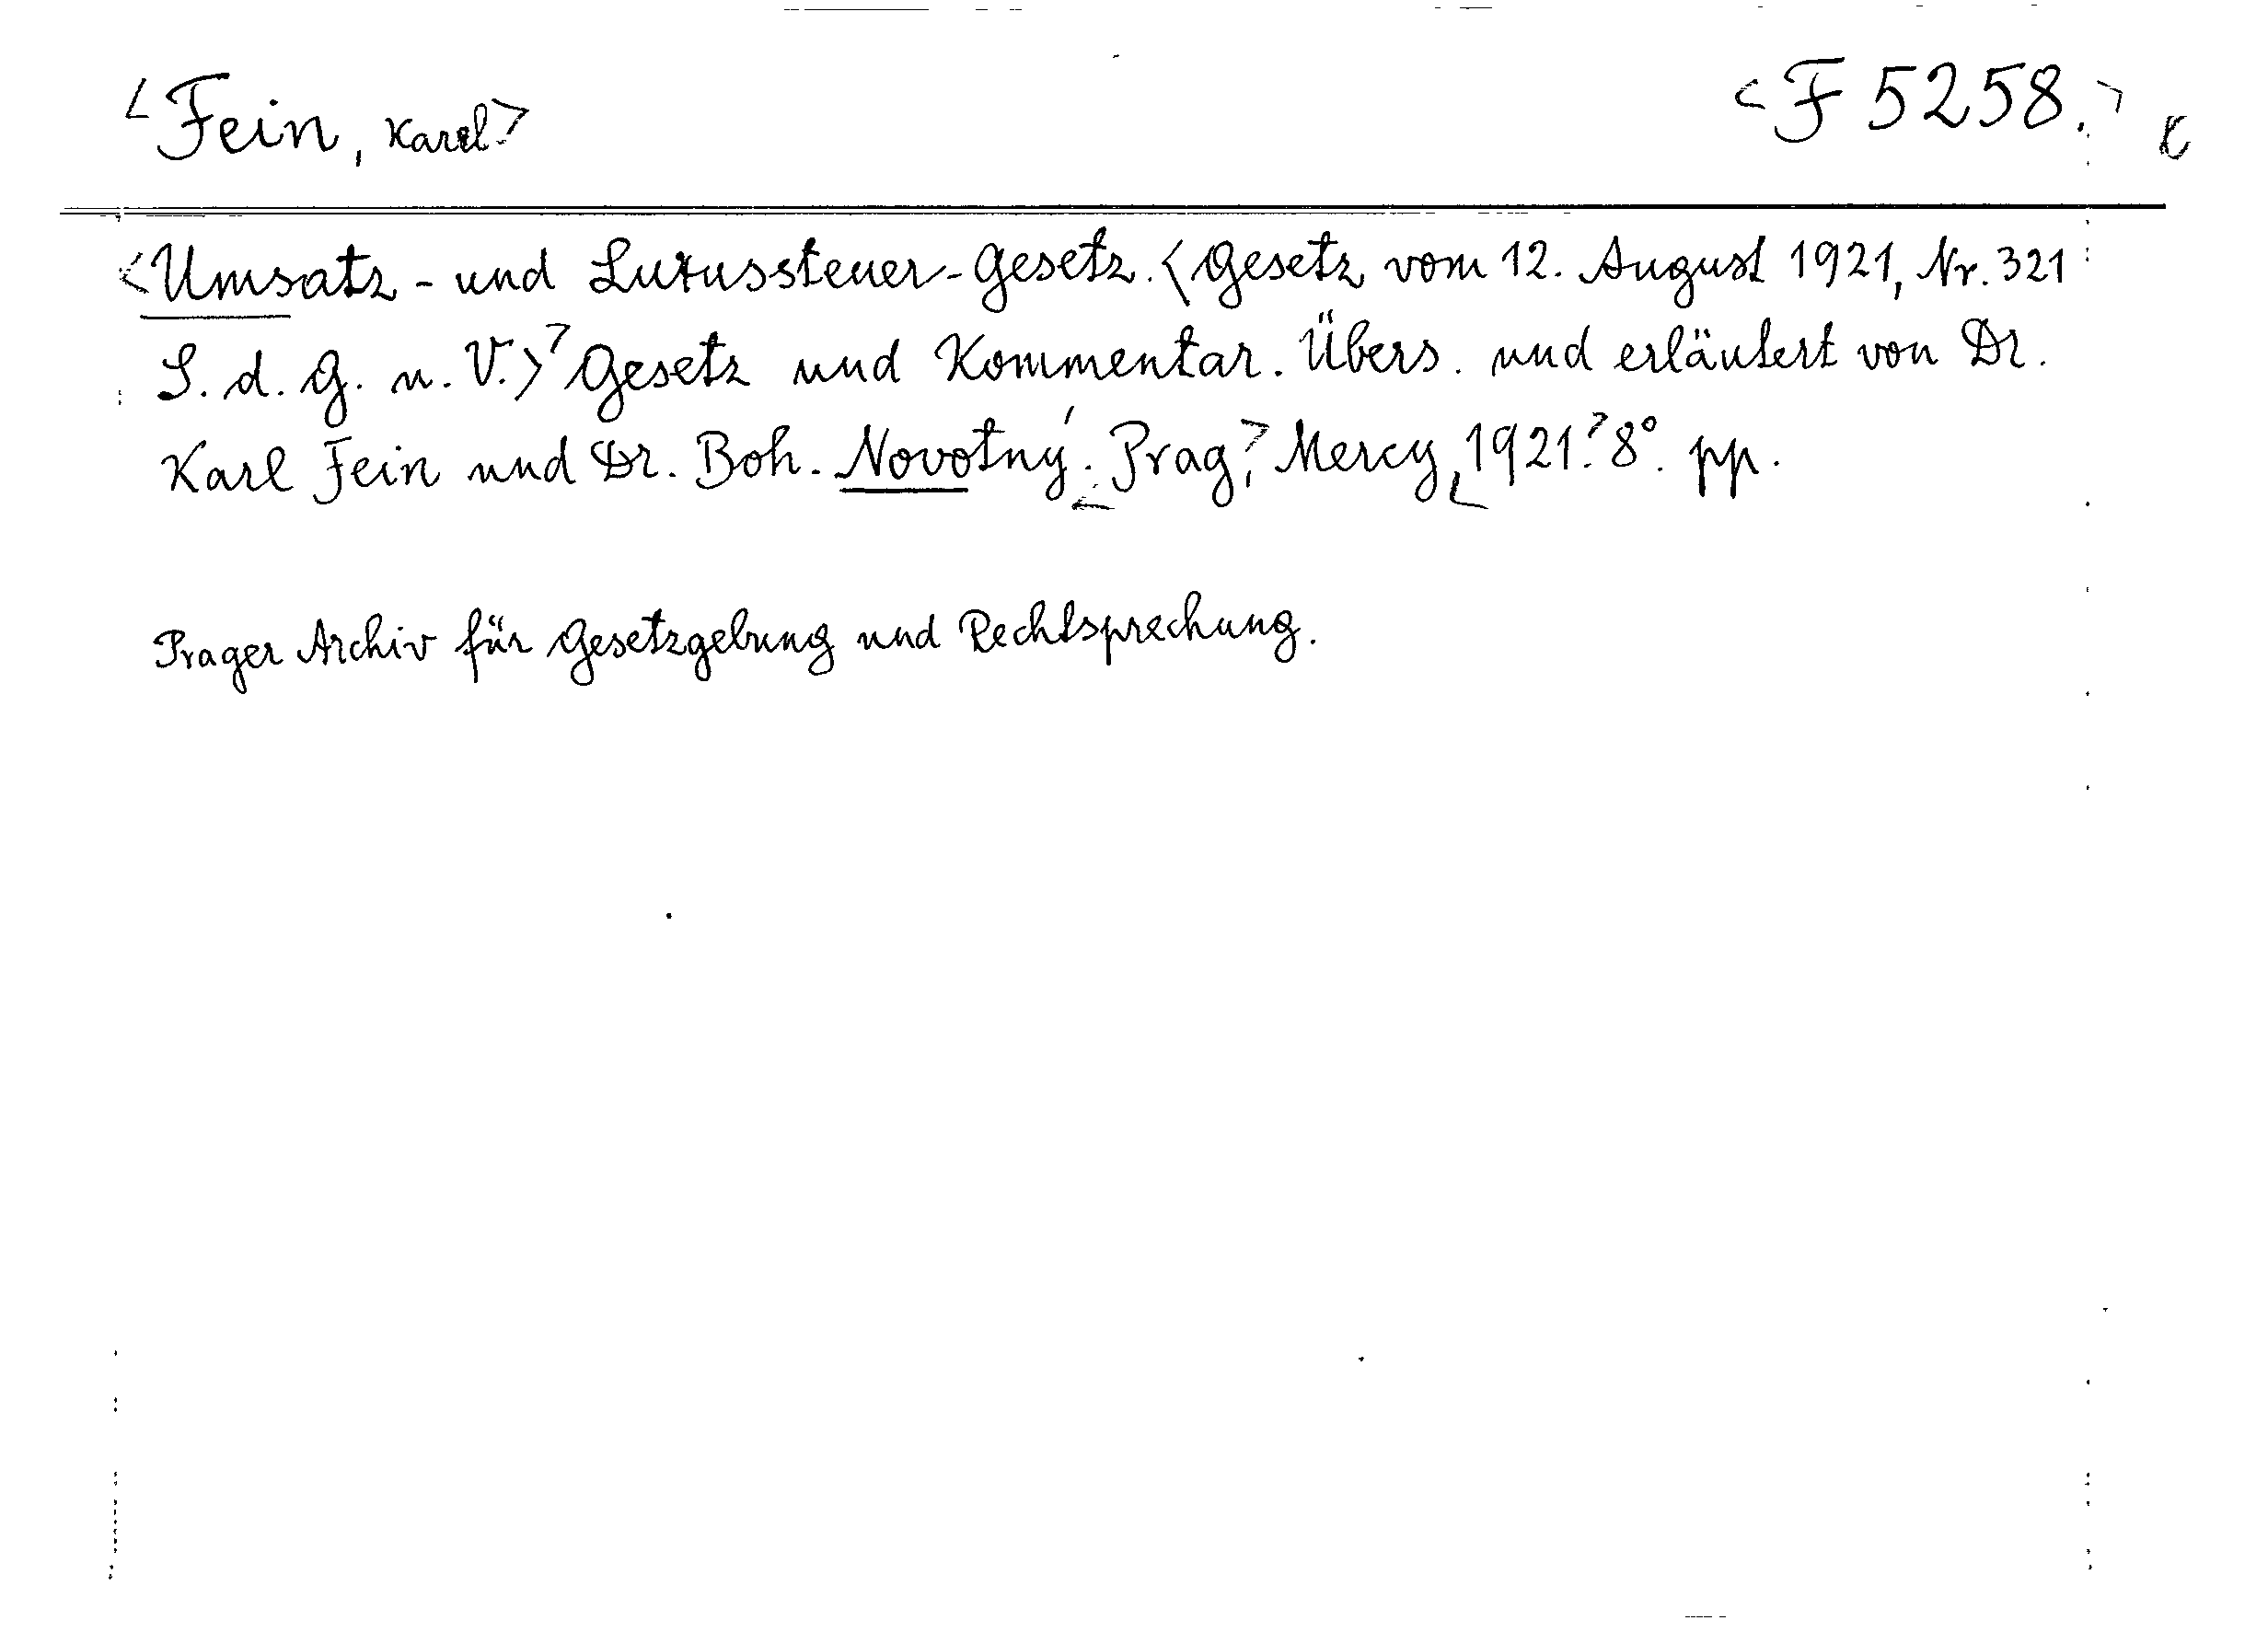 <Fein, Karel> <F 5258.>
<Umsatz- und Luxussteuer-Gesetz. <Gesetz vom 12. August 1921, Nr. 321
S. d. G. u. V.>> Gesetz und Kommentar. Übers. und erläutert von Dr.
Karl Fein und Dr. Boh. Novotný. <Prag>, Mercy, <1921.> 8°. pp.
Prager Archiv für Gesetzgebung und Rechtsprechung.